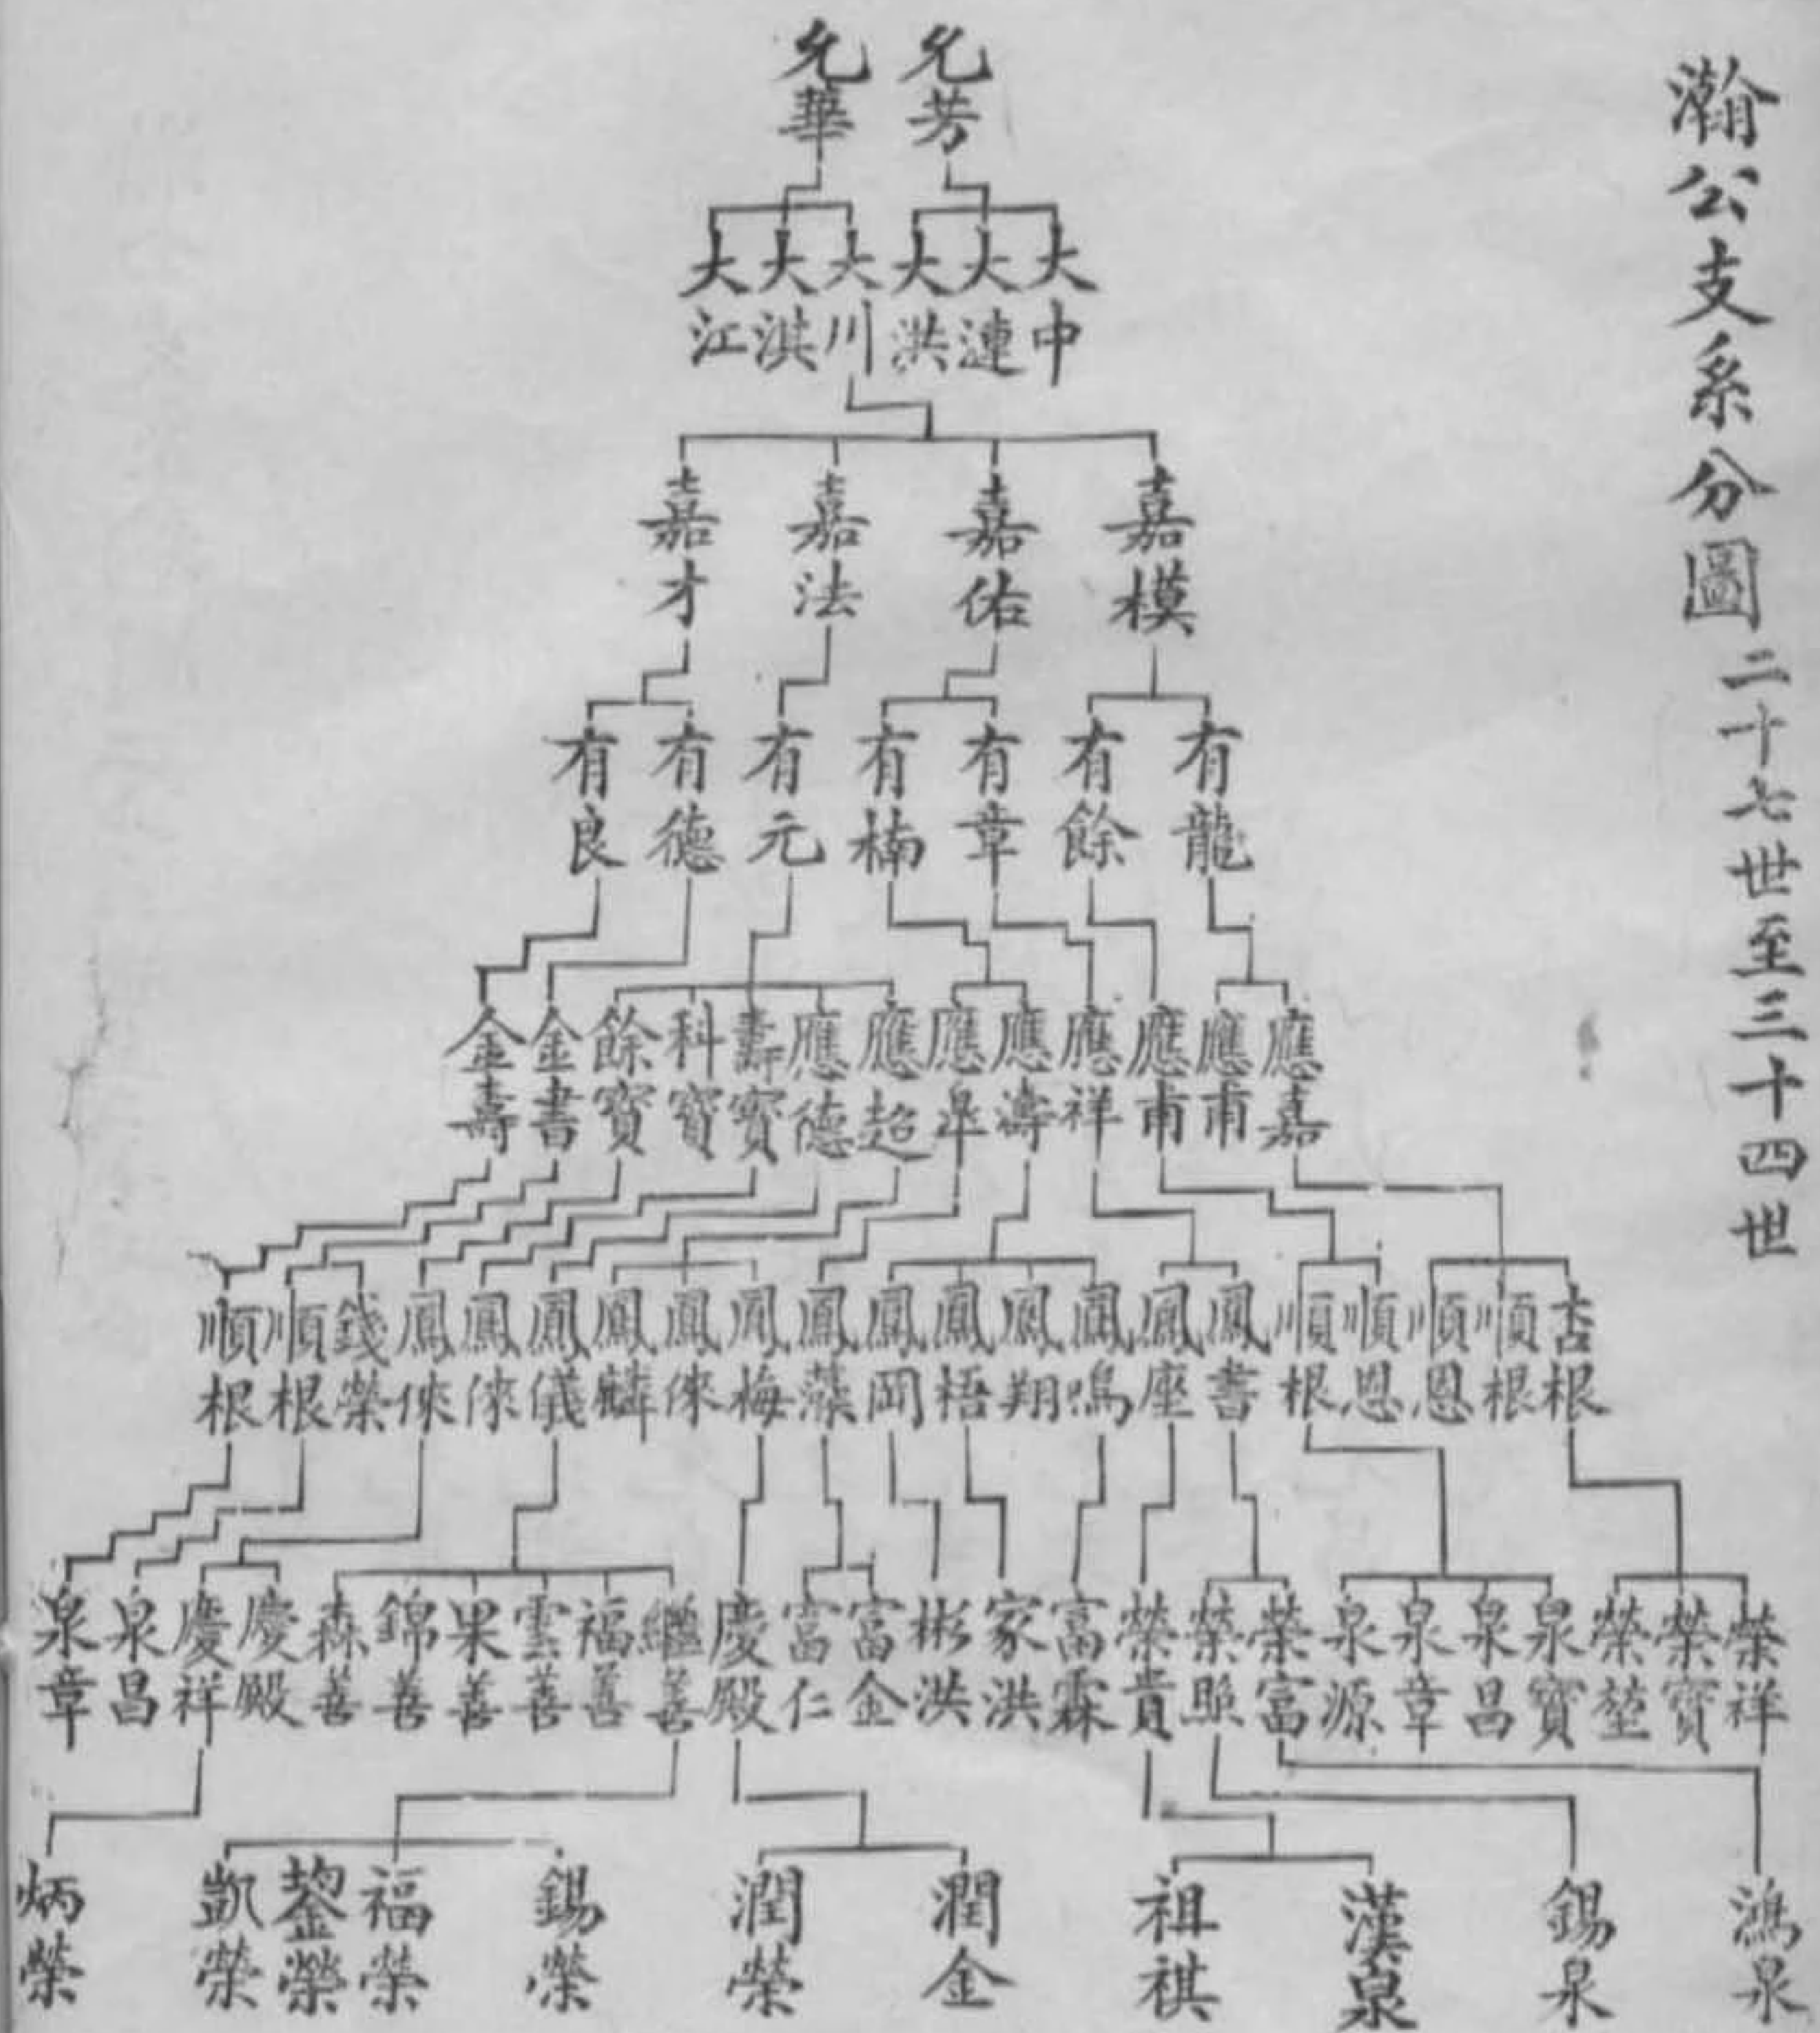 瀚公支系分圖 二十七世至三十四世
允芳 允華
大中 大連 大洪 大川 大淇 大江
嘉模 嘉佑 嘉法 嘉才
有龍 有餘 有章 有楠 有元 有德 有良
應嘉 應甫 應甫 應祥 應濤 應皐 應超 應德 壽寶 科寶 餘寶 金書 金壽
杏根 順根 順恩 順恩 順根 鳳書 鳳座 鳳鳴 鳳翔 鳳梧 鳳岡 鳳藻 鳳梅 鳳倈 鳳麟 鳳儀 鳳倈 鳳倈 錢榮 順根 順根
榮祥 榮寶 榮堃 泉寶 泉昌 泉章 泉源 榮富 榮照 榮貴 富霖 家洪 彬洪 富金 富仁 慶殿 繼善 福善 雲善 果善 錦善 森善 慶殿 慶祥 泉昌 泉章
鴻泉 錫泉 漢泉 祖祺 潤金 潤榮 錫榮 福榮 榮 凱榮 炳榮